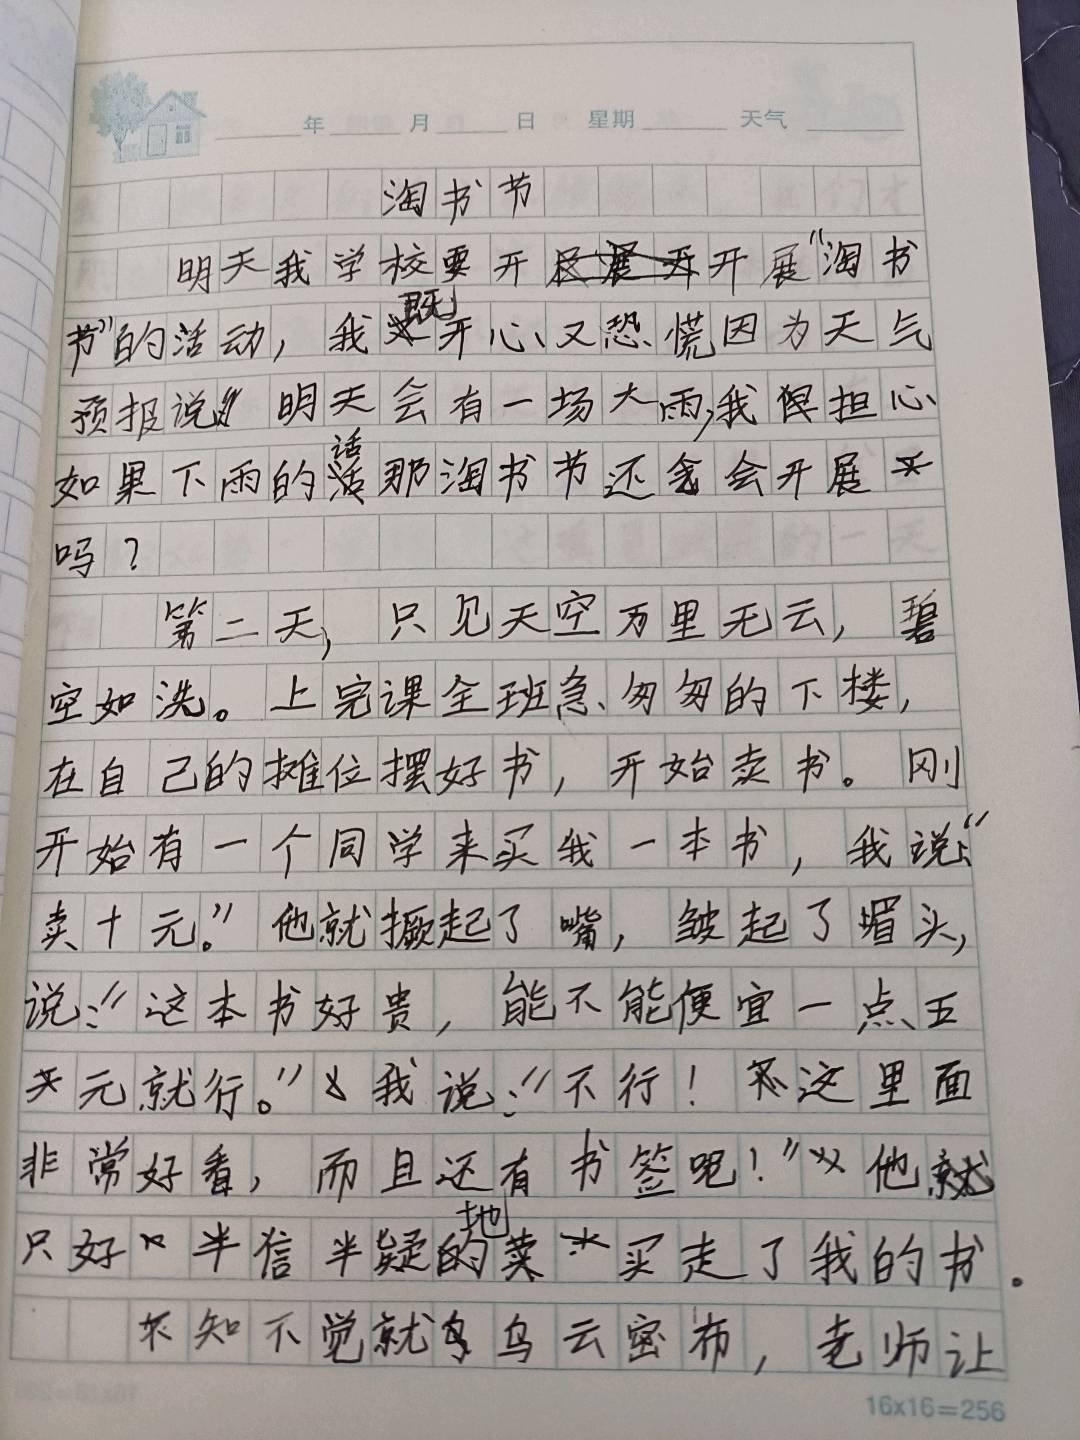 年 月 日 星期 天气
淘书节
明天我学校要开开展“淘书
节”的活动，我既开心又恐慌因为天气
预报说：“明天会有一场大雨，我很担心
如果下雨的话那淘书节还会开展
吗？
第二天，只见天空万里无云，碧
空如洗。上完课全班急匆匆的下楼，
在自己的摊位摆好书，开始卖书。刚
开始有一个同学来买我一本书，我说：“
卖十元。”他就撅起了嘴，皱起了眉头，
说：“这本书好贵，能不能便宜一点五
元就行。”我说：“不行！这里面
非常好看，而且还有书签呢！”他
只好半信半疑地买走了我的书。
不知不觉就乌云密布，老师让
16x16=256